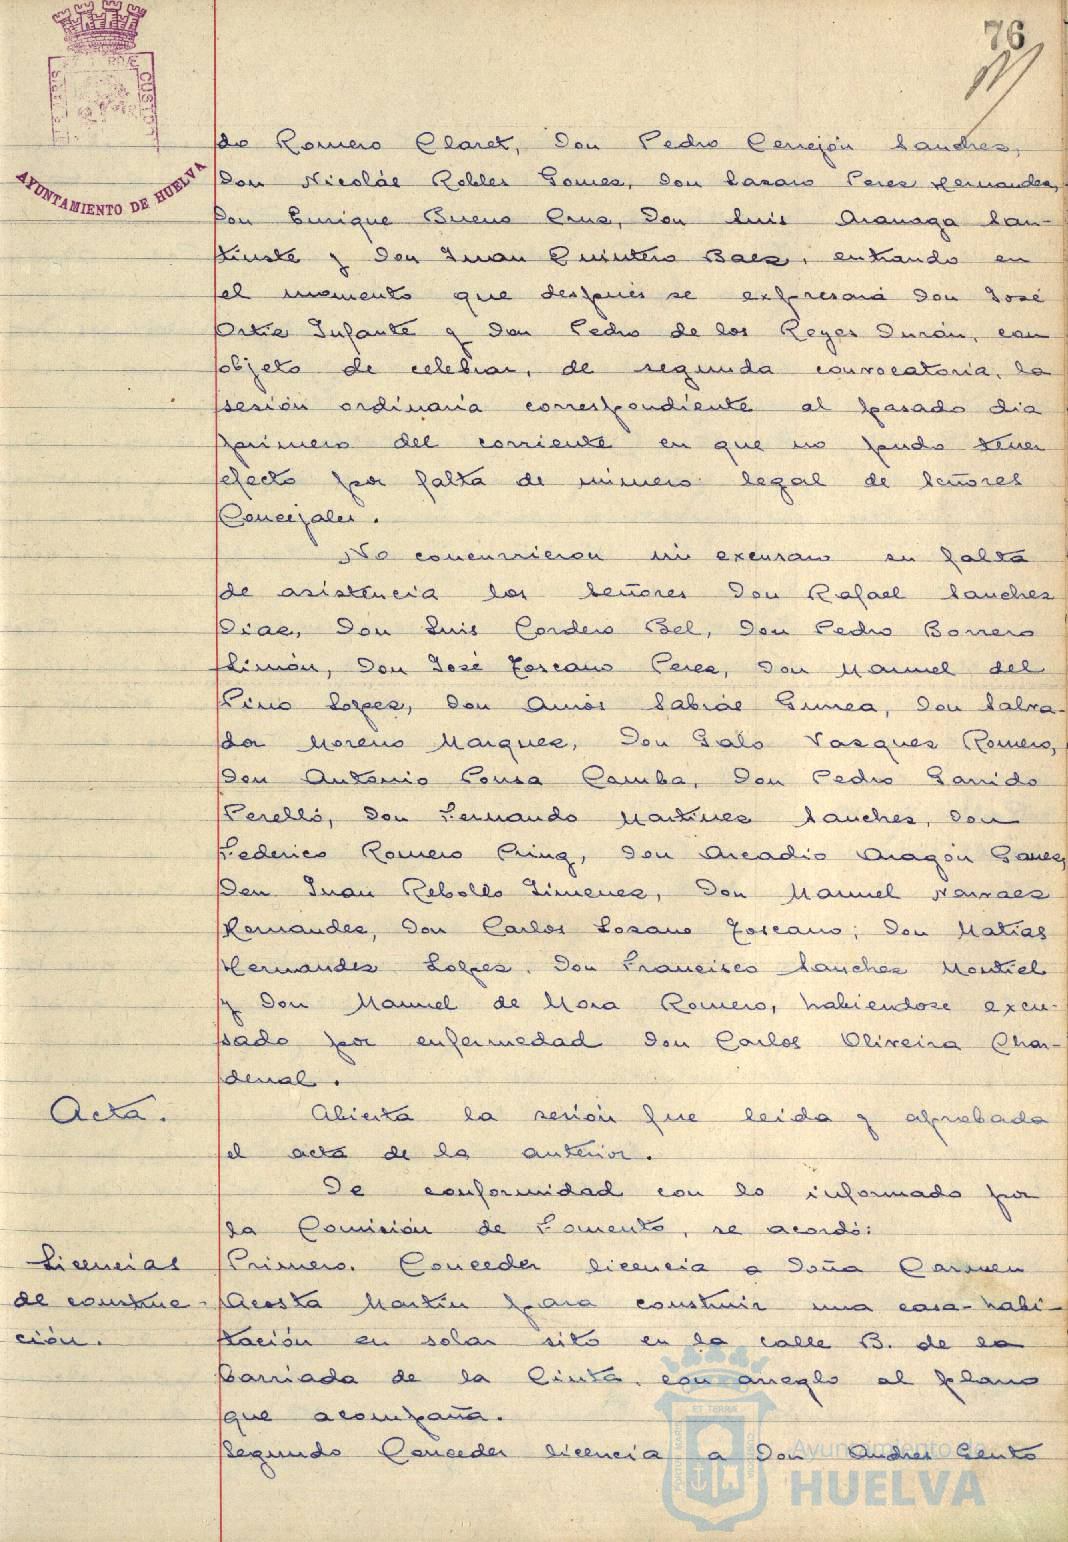 76
AYUNTAMIENTO DE HUELVA
do Romero Claret, Don Pedro Cerrejón Sanches,
Don Nicolás Robles Gomes, Don Lasaro Peres Hernandes,
Don Enrique Bueno Crus, Don Luis Aranaga San-
tiuste y Don Juan Quintero Baes, entrando en
el momento que después se expresará Don José
Ortis Infante y Don Pedro de los Reyes Durán, con
objeto de celebrar, de segunda convocatoria, la
sesión ordinaria correspondiente al pasado dia
primero del corriente en que no pudo tener
efecto por falta de número legal de Señores
Concejales.
No concurrieron ni excusaron su falta
de asistencia los Señores Don Rafael Sanches
Dias, Don Luis Cordero Bel, Don Pedro Borrero
Limón, Don José Toscano Peres, Don Manuel del
Pino Lopes, Don Amós Sabrás Gurrea, Don Salva-
dor Moreno Marques, Don Galo Vasques Romero,
Don Antonio Pousa Camba, Don Pedro Garrido
Perelló, Don Fernando Martines Sanches, Don
Federico Romero Pring, Don Arcadio Aragón Gomes,
Don Juan Rebollo Jimenes, Don Manuel Narvaes
Hernandes, Don Carlos Losano Toscano; Don Matías
Hernandes Lopes, Don Francisco Sanches Montiel
y Don Manuel de Mora Romero, habiendose excu-
sado por enfermedad Don Carlos Oliveira Char-
denal.
Acta.
Abierta la sesión fue leida y aprobada
el acta de la anterior.
De conformidad con lo informado por
la Comisión de Fomento, se acordó:
Licencias
de construc-
ción.
Primero. Conceder licencia a Doña Carmen
Acosta Martín para construir una casa-habi-
tación en solar sito en la calle B. de la
Barriada de la Cinta, con arreglo al plano
que acompaña.
Segundo Conceder licencia a Don Andres Gento
Ayuntamiento de
HUELVA